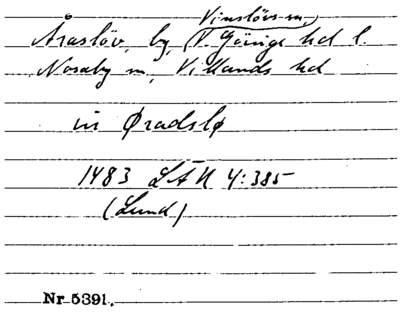 Vinslövs sn,
Åraslöv, by, V. Göinge hd l.
Nosaby sn, Villands hd
in Øradslø
1483 LÄU 4:385
(Lund)
Nr 5391.